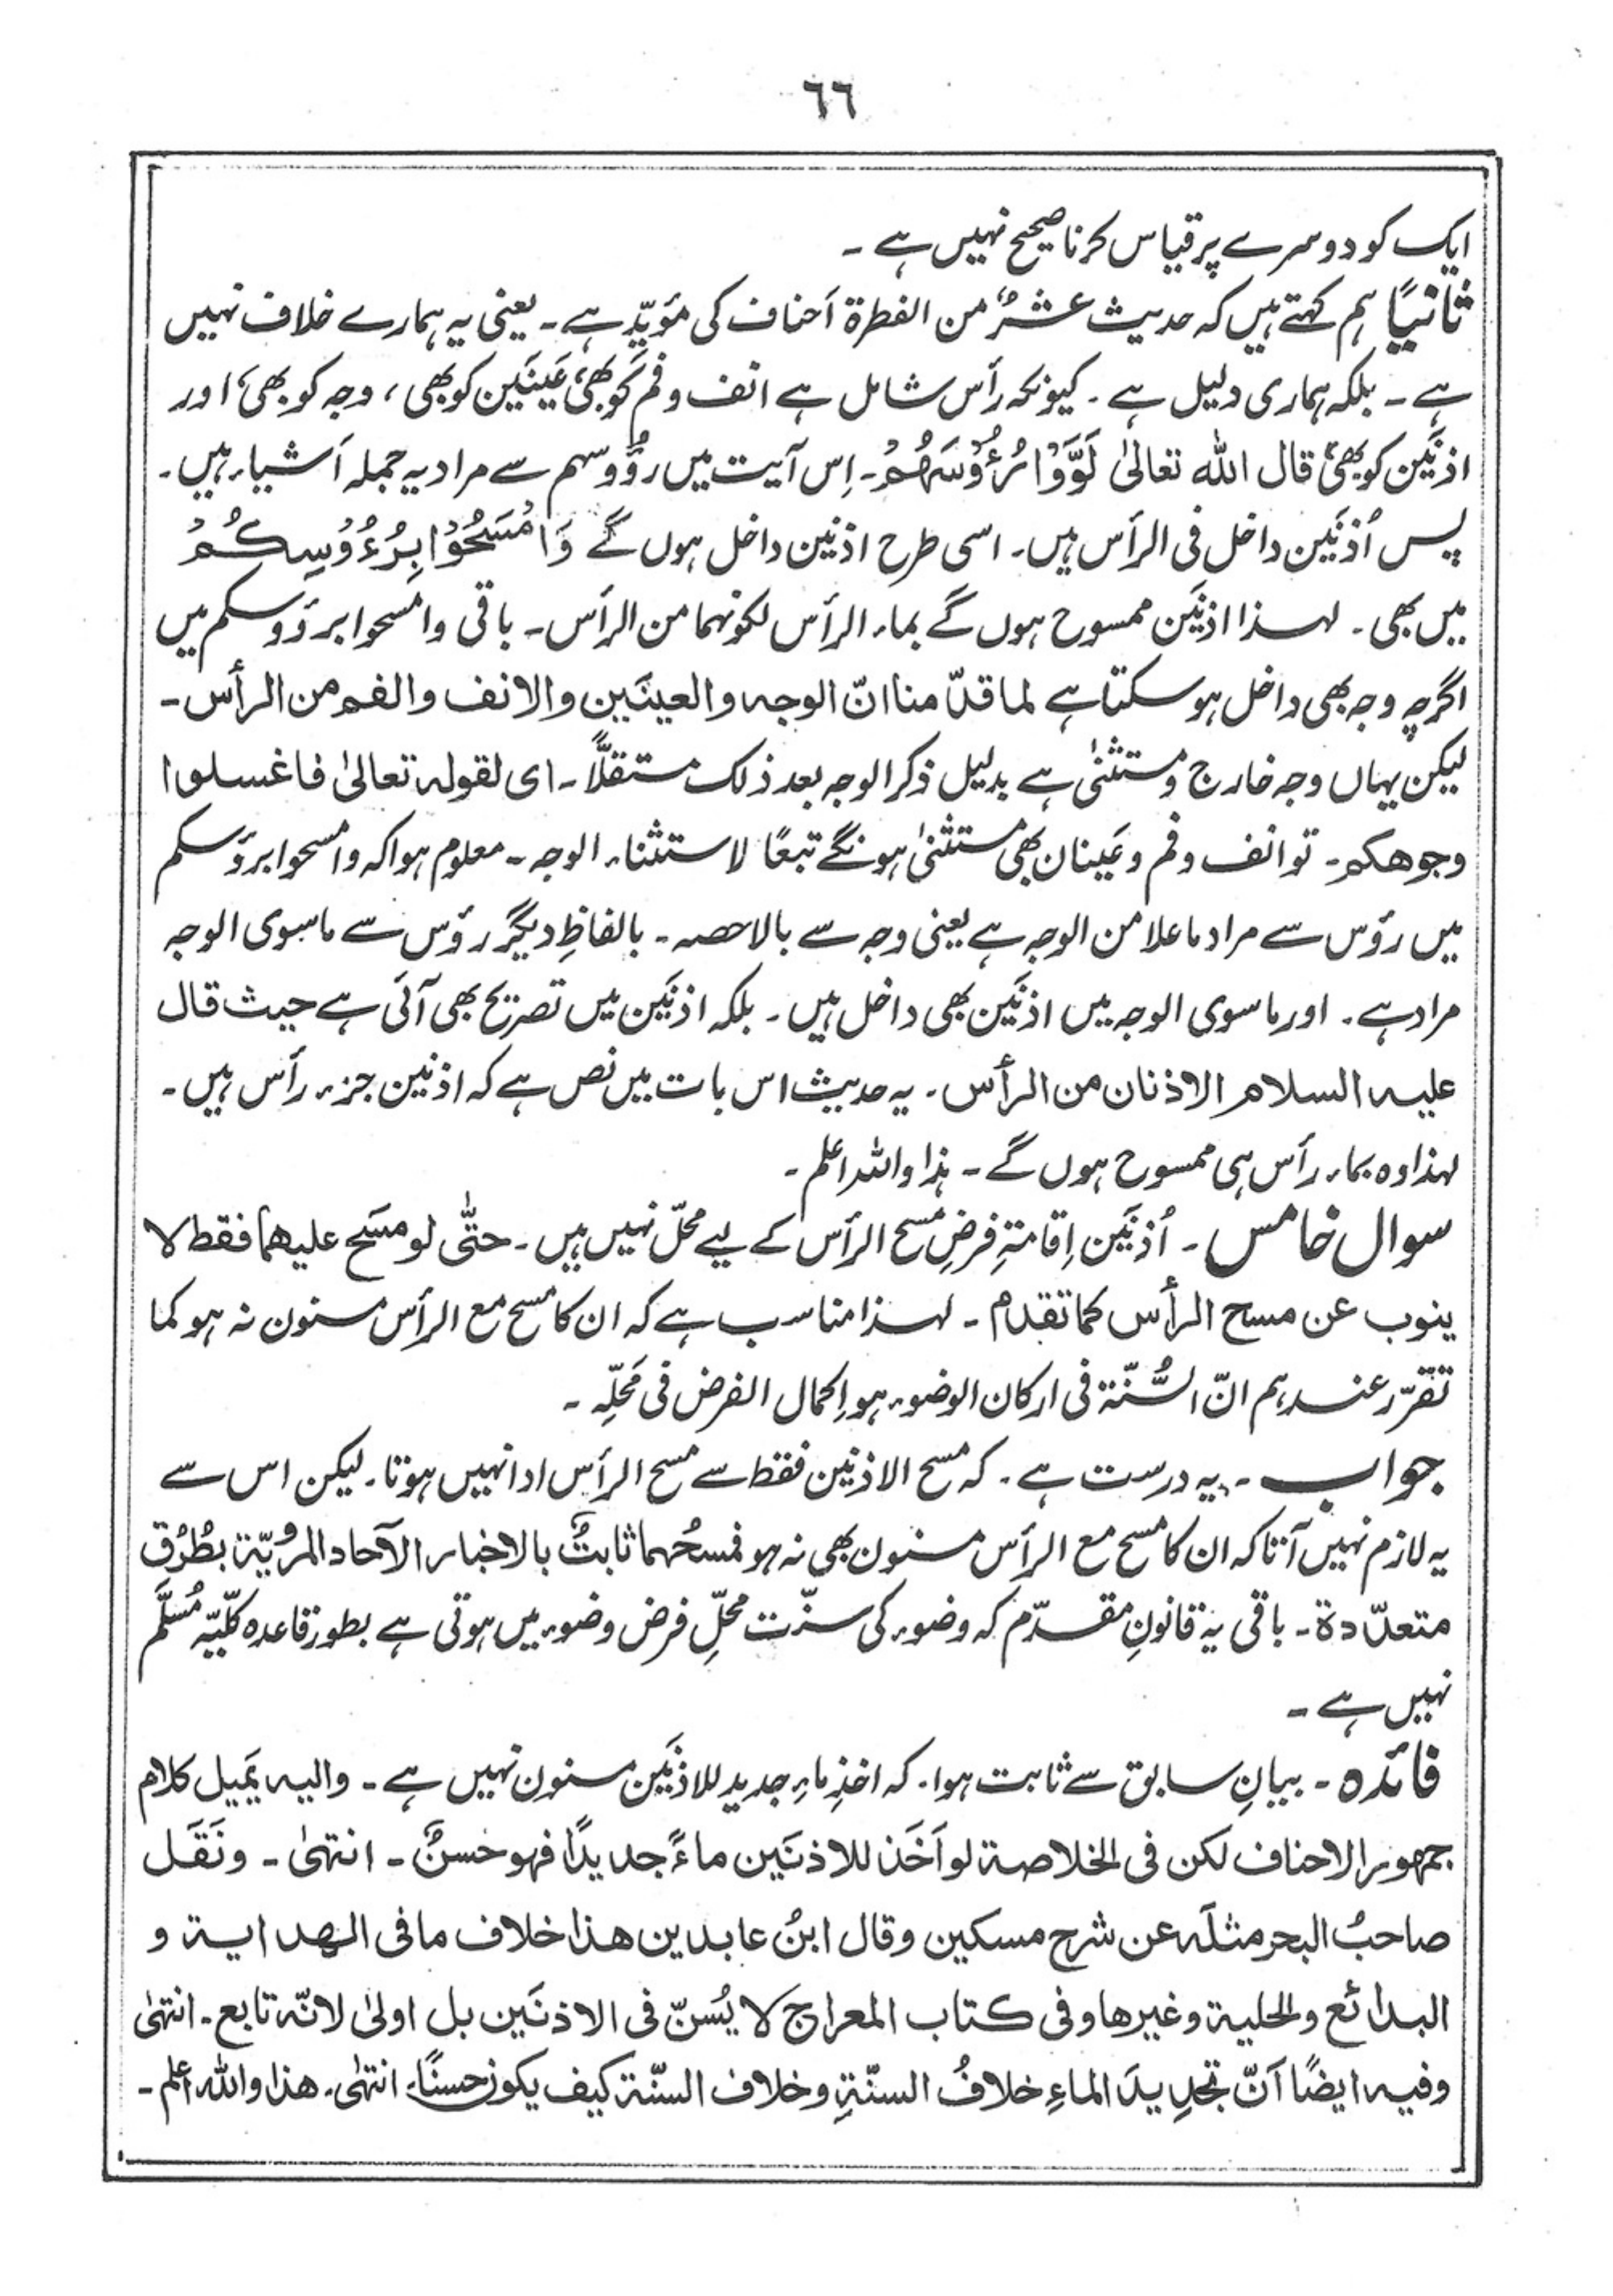 ٦٦
ایک کو دوسرے پر قیاس کرنا صحیح نہیں ہے ۔
ثانیًا ہم کہتے ہیں کہ حدیث عشرٌ من الفطرۃ اَحناف کی مؤیّد ہے ۔ یعنی یہ ہمارے خلاف نہیں
ہے ۔ بلکہ ہماری دلیل ہے ۔ کیونکہ رأس شامل ہے انف و فم کو بھی، عَینَین کو بھی ، وجہ کو بھی، اور
اذنَین کو بھی، قال اللہ تعالیٰ لَوَّوْا رُءُوْسَهُمْ ۔ اِس آیت میں رؤوسہم سے مراد یہ جملہ اَشیاء ہیں ۔
پس اُذنَین داخل فی الرأس ہیں ۔ اسی طرح اذنین داخل ہوں گے وَامْسَحُوْا بِرُءُوْسِكُمْ
میں بھی ۔ لہذا اذنَین ممسوح ہوں گے بماء الرأس لکونہما من الرأس ۔ باقی وامسحوا برؤوسکم میں
اگرچہ وجہ بھی داخل ہوسکتا ہے لما قدّمنا انّ الوجہ والعینَین والانف والفم من الرأس ۔
لیکن یہاں وجہ خارج و مستثنیٰ ہے بدلیل ذکر الوجہ بعد ذلک مستقلًّا ۔ ای لقولہ تعالیٰ فاغسلوا
وجوھکم ۔ تو انف و فم و عَینان بھی مستثنیٰ ہونگے تبعًا لاستثناء الوجہ ۔ معلوم ہوا کہ وامسحوا برؤسکم
میں رؤس سے مراد ما علا من الوجہ ہے یعنی وجہ سے بالا حصہ ۔ بالفاظِ دیگر رؤس سے ماسوی الوجہ
مراد ہے ۔ اور ماسوی الوجہ میں اذنَین بھی داخل ہیں ۔ بلکہ اذنَین میں تصریح بھی آئی ہے حیث قال
علیہ السلام الاذنان من الرأس ۔ یہ حدیث اس بات میں نص ہے کہ اذنین جزء رأس ہیں ۔
لہذا وہ بماء رأس ہی ممسوح ہوں گے ۔ ہذا واللہ اعلم ۔
سوال خامس ۔ اُذنَین اِقامۃِ فرضِ مسح الرأس کے لیے محلّ نہیں ہیں ۔ حتّٰی لو مسَح علیھما فقط لا
ینوب عن مسح الرأس کما تقدم ۔ لہذا مناسب ہے کہ ان کا مسح مع الرأس مسنون نہ ہو کما
تقرّر عندہم انّ السُّنّۃ فی ارکان الوضوء ہو اِکمال الفرض فی مَحَلِّہ ۔
جواب ۔ یہ درست ہے ۔ کہ مسح الاذنین فقط سے مسح الرأس ادا نہیں ہوتا ۔ لیکن اس سے
یہ لازم نہیں آتا کہ ان کا مسح مع الرأس مسنون بھی نہ ہو فمسحُہما ثابتٌ بالاخبار الآحاد المرویّۃ بطُرُق
متعدّدۃ ۔ باقی یہ قانونِ مقدّم کہ وضوء کی سنّت محلِّ فرض وضوء میں ہوتی ہے بطور قاعدہ کلّیّہ مُسلَّم
نہیں ہے ۔
فائدہ ۔ بیانِ سابق سے ثابت ہوا ۔ کہ اخذِ ماءِ جدید للاذنَین مسنون نہیں ہے ۔ والیہ یَمیل کلام
جمہور الاحناف لکن فی الخلاصۃ لو اَخَذ للاذنَین ماءً جدیدًا فھو حَسنٌ ۔ انتہیٰ ۔ ونَقَل
صاحبُ البحر مثلَہ عن شرح مسکین وقال ابنُ عابدین ھذا خلاف ما فی الھدایۃ و
البدائع والحلیۃ وغیرھا وفی کتاب المعراج لا یُسنّ فی الاذنَین بل اولیٰ لانّہ تابع ۔ انتہیٰ
وفیہ ایضًا اَنّ تجدِیدَ الماءِ خلافُ السنّۃِ وخلاف السنّۃ کیف یکون حسنًا، انتہٰی ۔ ھذا واللہ اعلم ۔